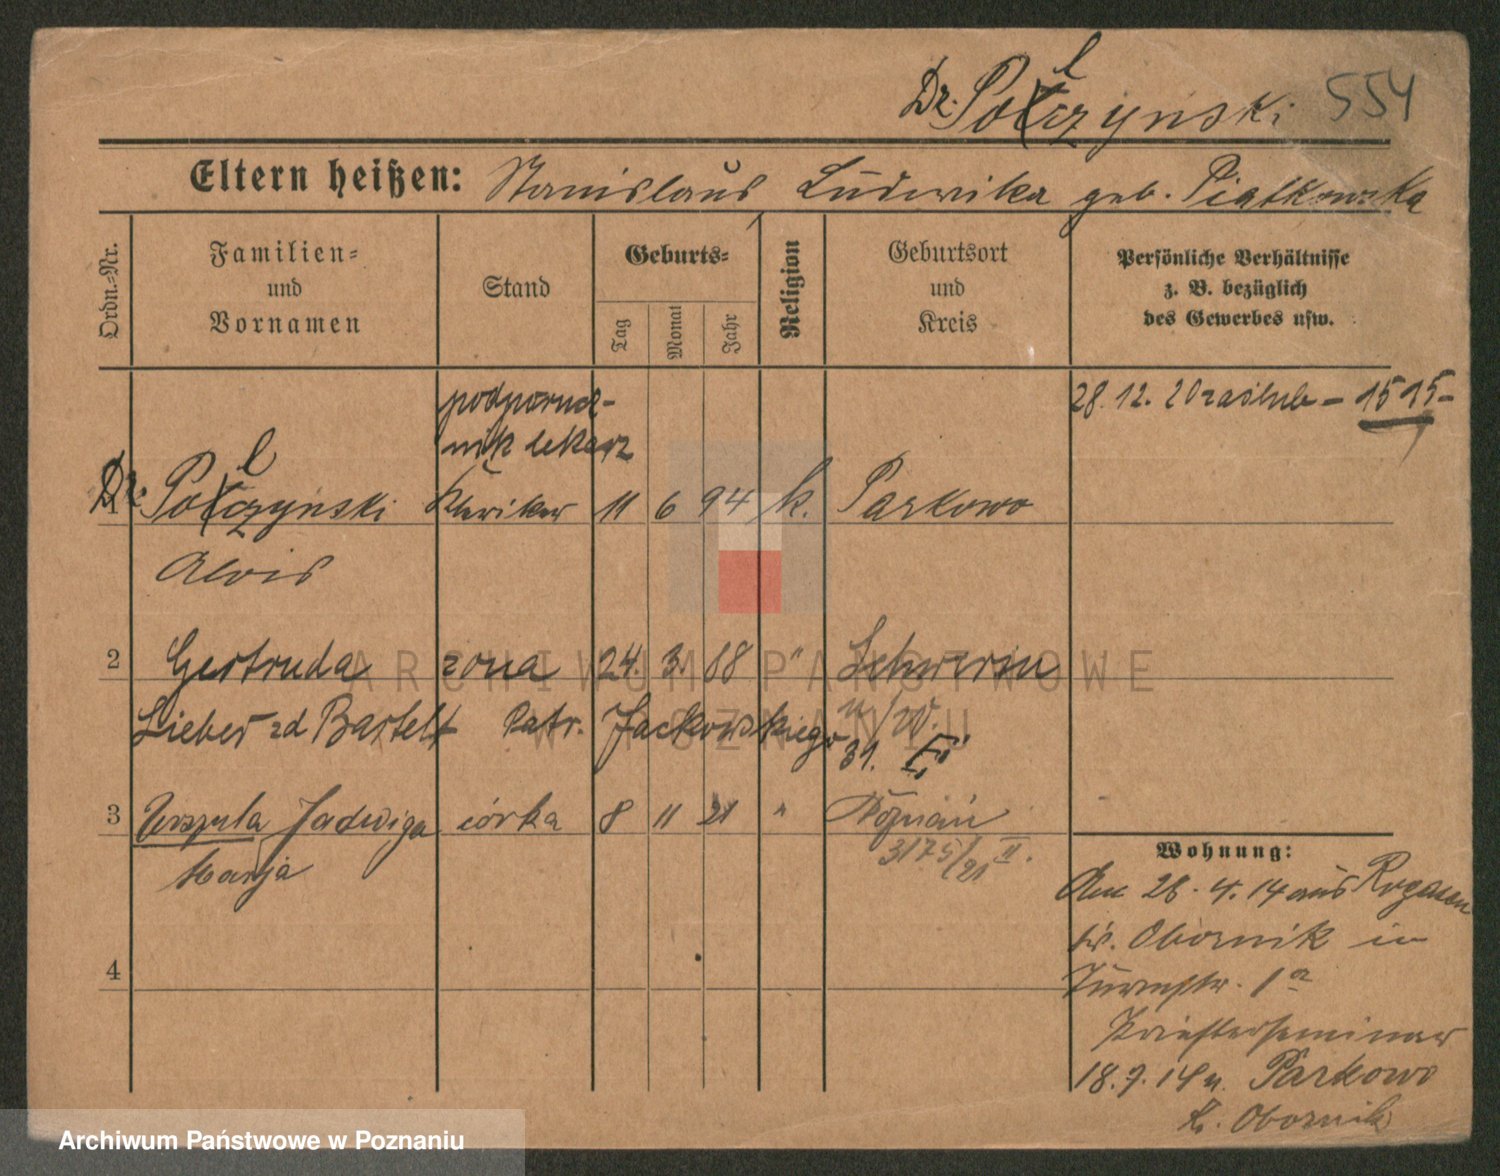 Dr. Polczynski 554
Eltern heißen: Stanislaus Ludwika geb. Piatkowska
Ordn.-Nr.
Familien-
und
Vornamen
Stand
Geburts-
Tag
Monat
Jahr
Religion
Geburtsort
und
Kreis
Persönliche Verhältnisse
z. B. bezüglich
des Gewerbes usw.
podporucz-
nik lekarz
28.12.20 zaślub – 1515 –
1 Dr. Polczynski Kleriker 11 6 94 k. Parkowo
Alois
2 Gertruda żona 24. 3. 88 " Schwerin
Lieber zd Bartelt Patr. Jackowskiego a/W.
31.
3 Urszula Jadwiga córka 8 11 21 " Poznań
Marja
3175/21 II.
4
Wohnung:
Am 28.4.14 aus Rogasen
Kr. Obornik in
Turmstr. 1a
Priesterseminar
18.7.14 n. Parkowo
Kr. Obornik
ARCHIWUM PAŃSTWOWE
W POZNANIU
Archiwum Państwowe w Poznaniu